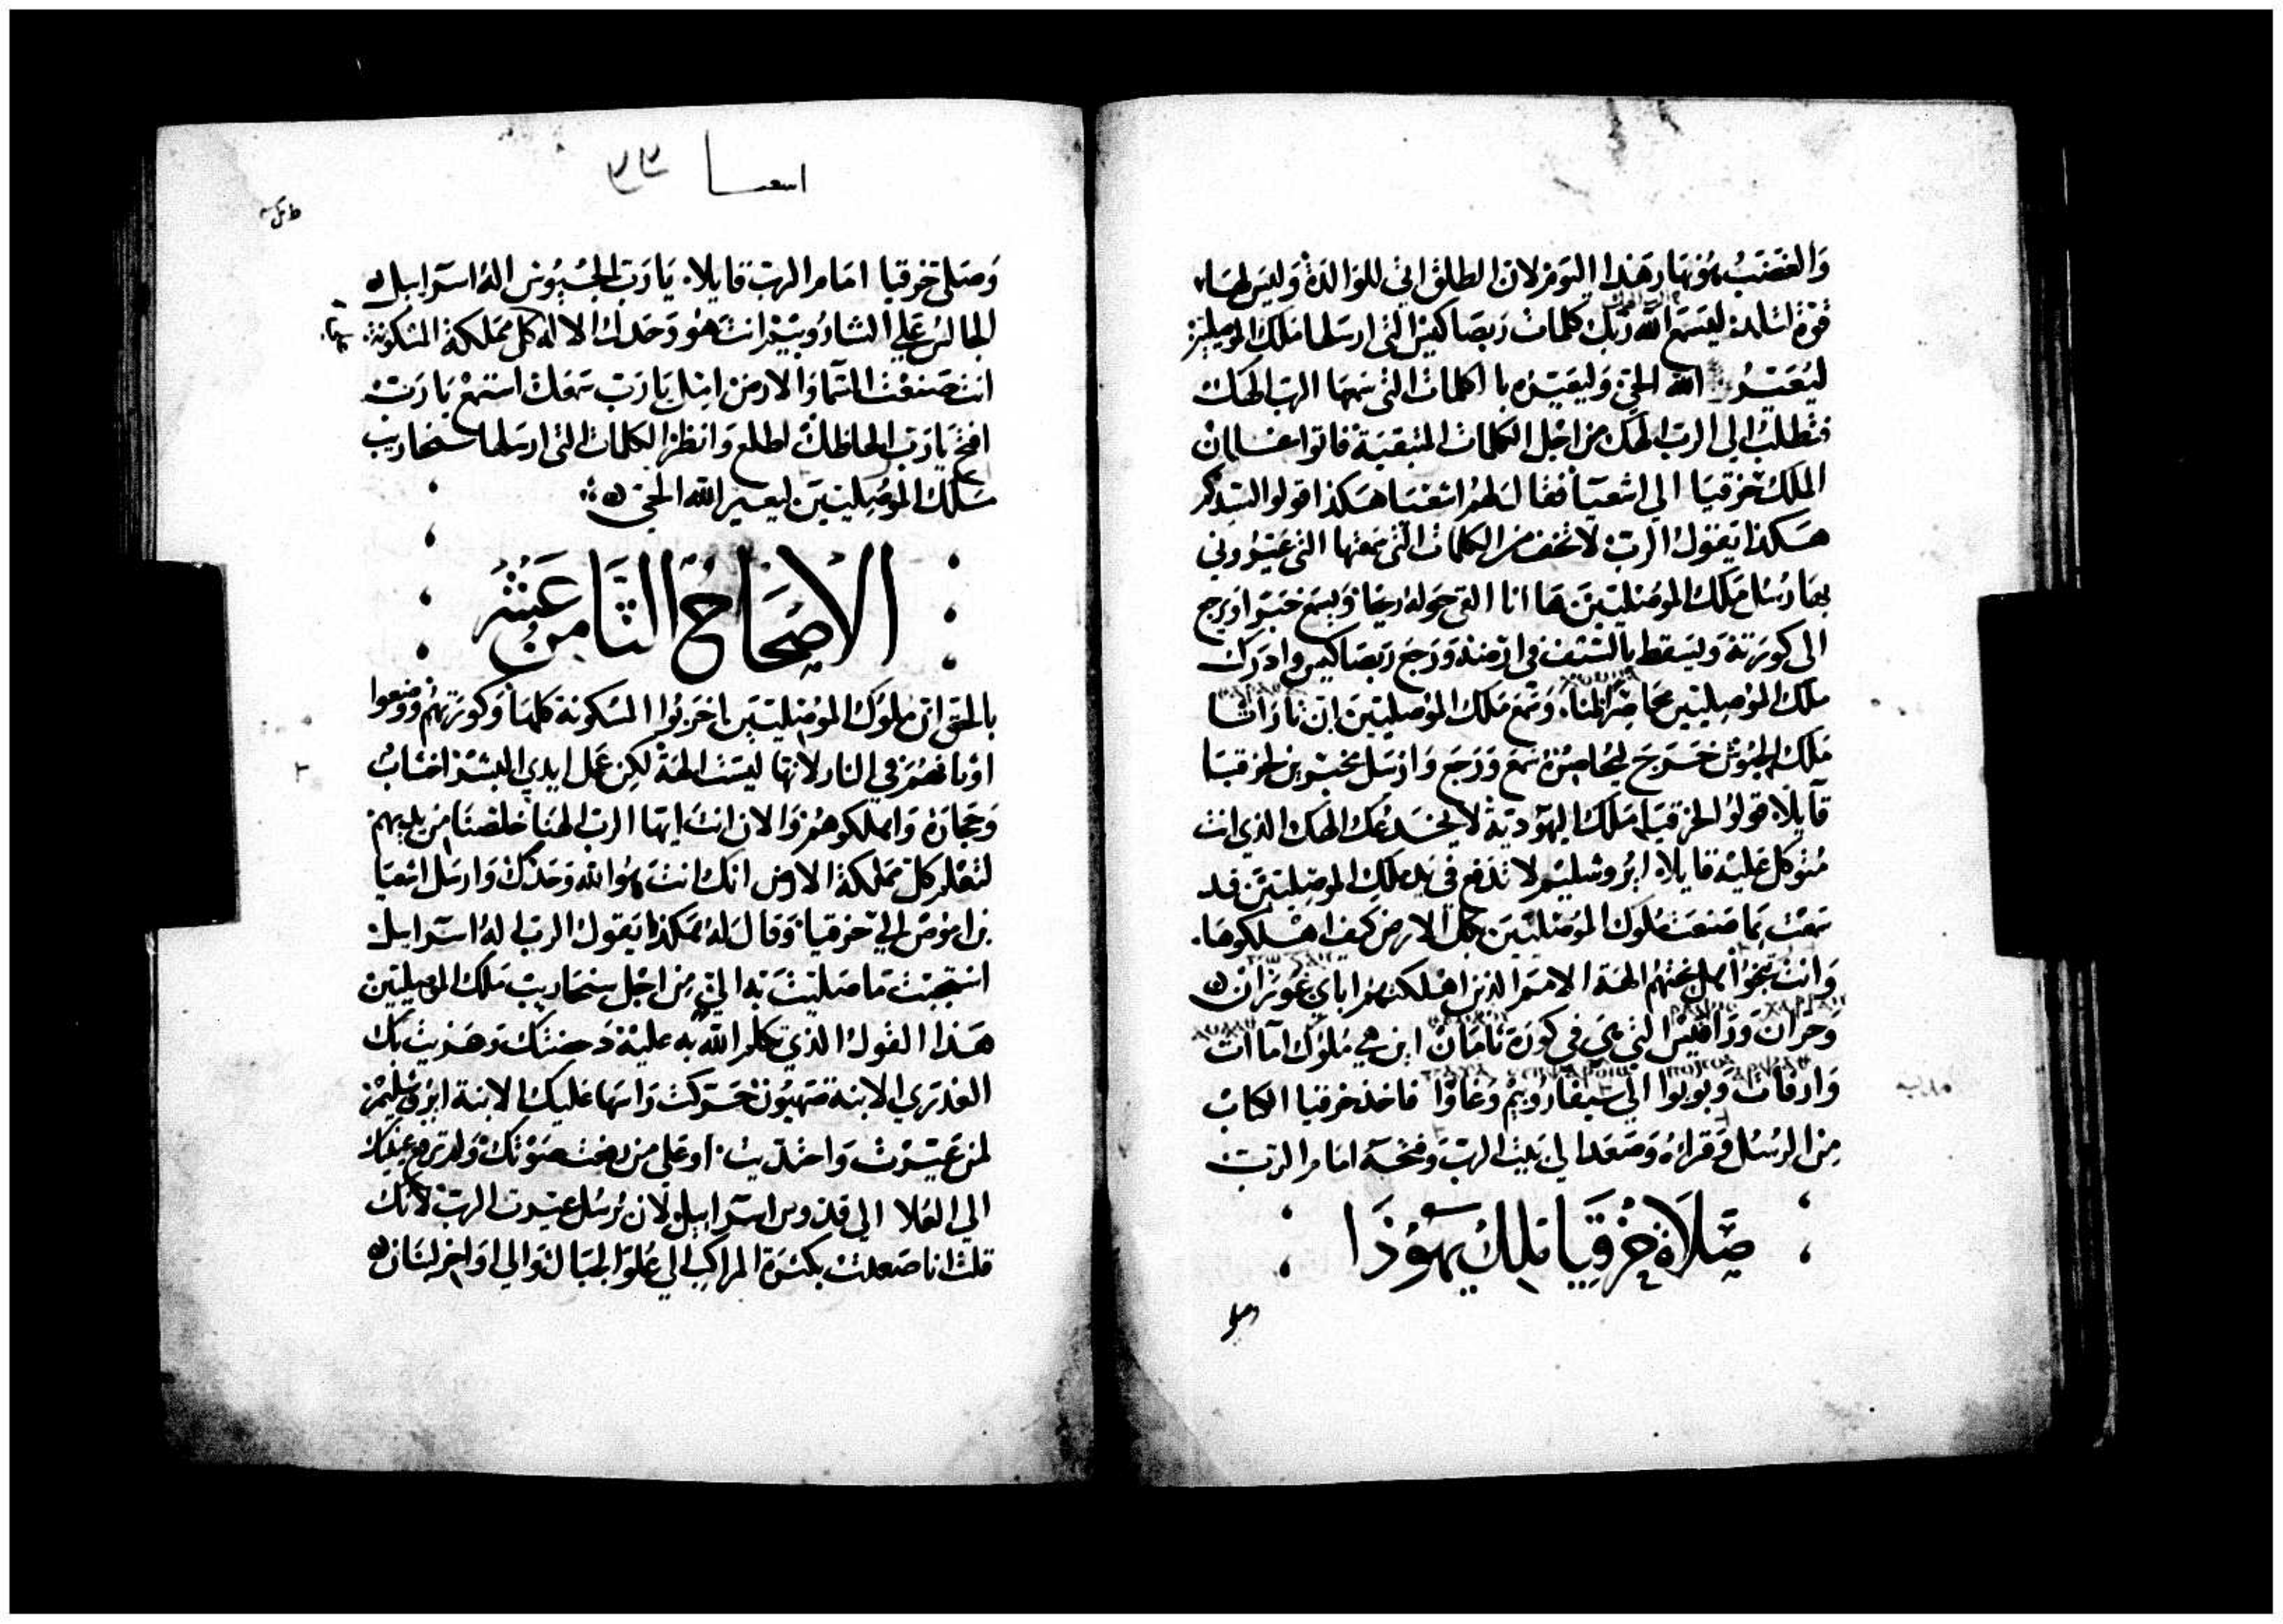 والغضب هو نهار هذا اليوم لان الطلق اتي للوالدة وليس لها
قوة لتلد ليسمع الله ربك كلمات ربصاكيس التي ارسلها ملك الموصليين
ليعير الله الحي وليعيره با لكلمات التي سمعها الرب الهك
فتطلب الي الرب الهك من اجل الكلمات المتبقية فاتوا غلمان
الملك حزقيا الي اشعيا فقال لهم اشعيا هكذا قولوا لسيدكم
هكذا يقول الرب لا تخف من الكلمات التي سمعتها التي عيروني
بها رسل ملك الموصليين ها انا القي حوله ريحا ويسمع خبرا ويرجع
الي كورته ويسقط بالسيف في ارضه ورجع ربصاكيس وادرك
ملك الموصليين محاصر لمنا وسمع ملك الموصليين ان
ملك الحبوش خرج ليحاصره سمع ورجع وارسل مخبرين لحزقيا
قايلا قولوا لحزقيا ملك اليهودية لا يخدعك الهك الذي انت
متوكل عليه قايلا ايروشليم لا تدفع في يد ملك الموصليين قد
سمعت بما صنعت ملوك الموصليين بكل الارض كيف اهلكوها
وانت تنجوا هل نجتهم الهة الامم الذين اهلكتهم اباي غوزان
وحران ورافيس التي هي في كورة تامان اين هي ملوك اماات
وارفات وبولوا الي سيفارويم وغاوا فاخذ حزقيا الكتاب
من الرسل وقراه وصعد الي بيت الرب وفتحه امام الرب
صلاة حزقيا ملك يهوذا
وصلي
اشعيا
وصلي حزقيا امام الرب قايلا يا رب الجيوش اله اسراييل
الجالس علي الشاروبيم انت هو وحدك الاله كل مملكة المسكونة
انت صنعت السما والارض اميل يا رب سمعك استمع يا رب
افتح يا رب الحاظك اطلع وانظر الكلمات التي ارسلها سنحاريب
ملك الموصليين ليعير الله الحي
الاصحاح الثامن عشر
بالحق ان ملوك الموصليين اخربوا المسكونة كلها وكورتهم ووضعوا
اوثانهم في النار لانها ليست الهة لكن عمل ايدي البشر اخشاب
وحجارة واهلكوهم والان انت ايها الرب الهنا خلصنا من يديهم
لتعلم كل مملكة الارض انك انت هو الله وحدك وارسل اشعيا
بن اموص الي حزقيا وقال له هكذا يقول الرب اله اسراييل
استجبت ما صليت به الي من اجل سنحاريب ملك الموصليين
هذا القول الذي تكلم الله به عليه
العذري الابنة صهيون حركت راسها عليك الابنة ايروشليم
لمن عيرت واحتديت او علي من رفعت صوتك ولم ترفع عينيك
الي العلا الي قدوس اسراييل لان برسل عيرت الرب لانك
قلت انا صعدت بكثرة المراكب الي علو الجبال والي اواخر لبنان